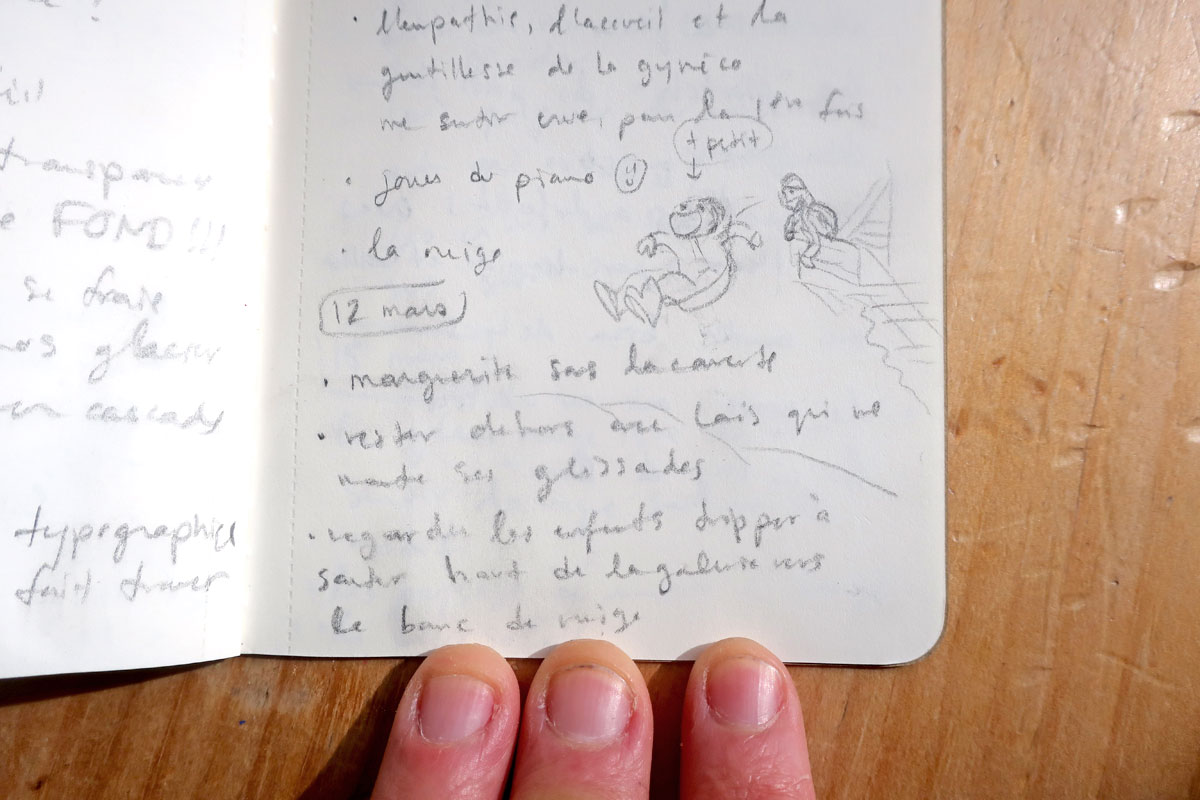 transparence
e FOND!!!
se fraie
glacier
en cascades
typographie
fait
• l'empathie, l'accueil et la
gentillesse de la gynéco
me sentir pour la 1ère fois
+ petit
• jouer du piano
• la neige
12 mars
• marguerite sous la couverte
• rester dehors avec Laïs qui me
monte ses glissades
• regarder les enfants tripper à
sauter haut de la galerie vers
le banc de neige